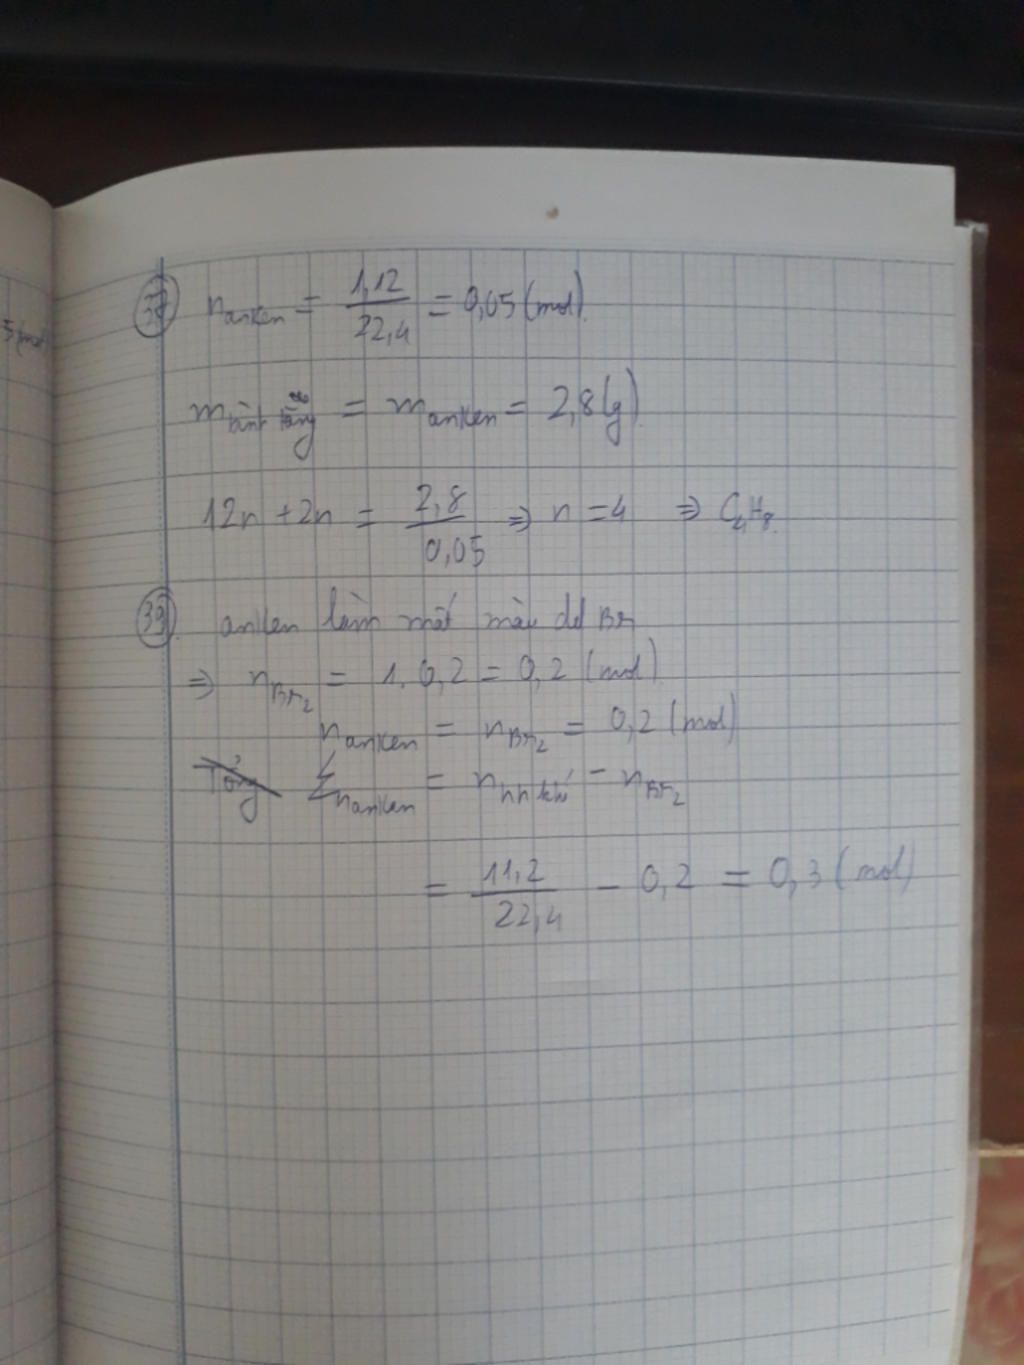 n anken = 1,12 / 22,4 = 0,05 (mol).
5 (mol)
m bình tăng = m anken = 2,8 (g)
12n + 2n = 2,8 / 0,05 ⇒ n = 4 ⇒ C₄H₈.
39 anken làm mất màu dd Br
⇒ n Br₂ = 1. 0,2 = 0,2 (mol)
n anken = n Br₂ = 0,2 (mol)
Tổng Σ n anken = n hh khí − n Br₂
= 11,2 / 22,4 − 0,2 = 0,3 (mol)